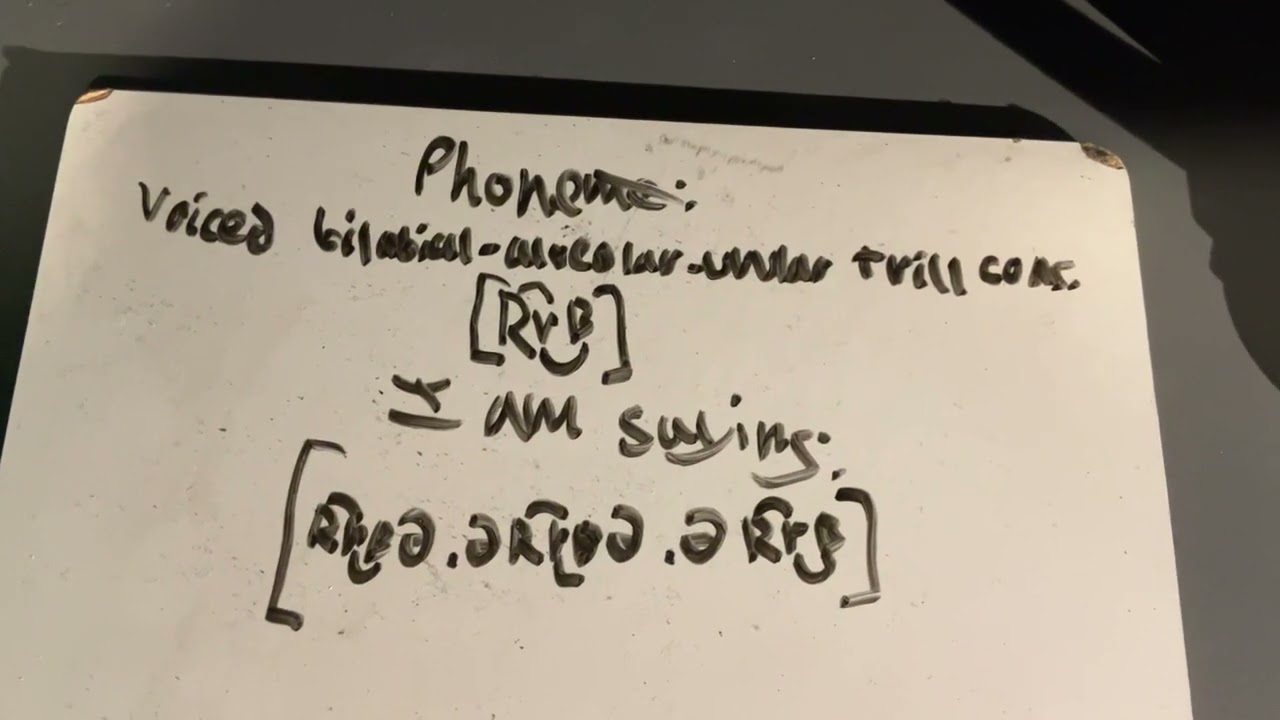 Phoneme:
Voiced bilabial-alveolar-uvular trill cons.
[ʀ͡r͜ʙ]
I am saying:
[ʀ͡r͜ʙə.əʀ͡r͜ʙə.əʀ͡r͜ʙ]